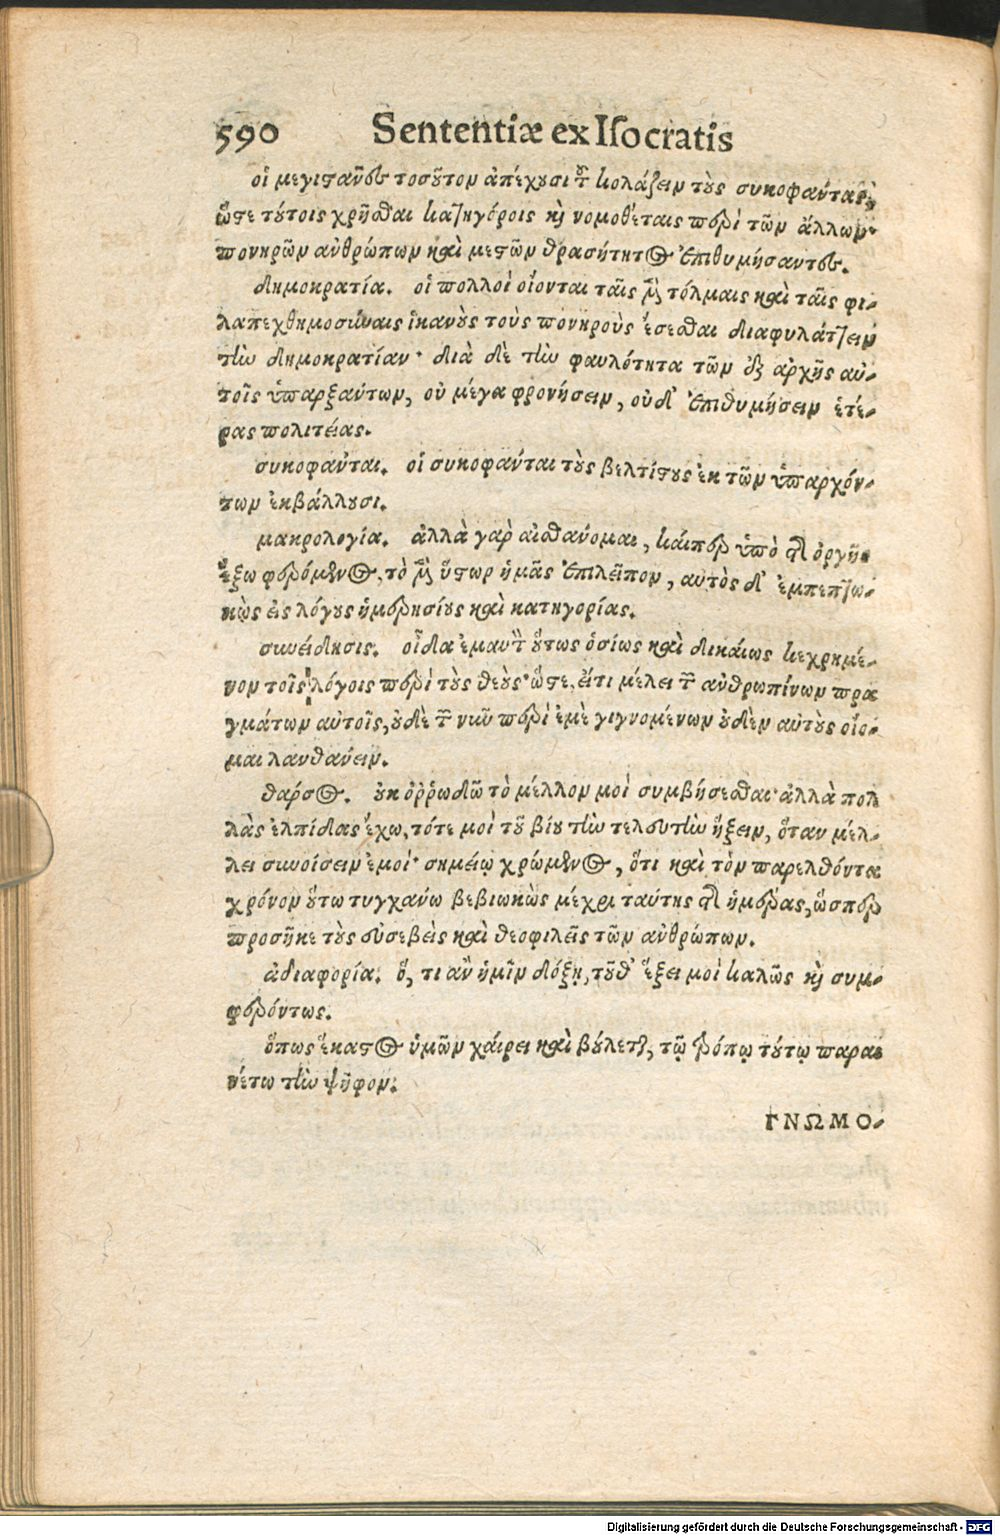 590 Sententiæ ex Isocratis
οἱ μεγιϛᾶνες τοσοῦτον ἀπέχουσι τοῦ κολάζειν τοὺς συκοφάντας,
ὥϛε τούτοις χρῆσθαι κατηγόροις καὶ νομοθέταις περὶ τῶν ἄλλων.
πονηρῶν ἀνθρώπων καὶ μεϛῶν θρασύτητος ἐπιθυμήσαντες.
δημοκρατία. οἱ πολλοὶ οἴονται ταῖς μὲν τόλμαις καὶ ταῖς φι-
λαπεχθημοσύναις ἱκανοὺς τοὺς πονηροὺς ἔσεσθαι διαφυλάττειν
τὴν δημοκρατίαν· διὰ δὲ τὴν φαυλότητα τῶν ἐξ ἀρχῆς αὐ-
τοῖς ὑπαρξάντων, οὐ μέγα φρονήσειν, οὐδ' ἐπιθυμήσειν ἑτέ-
ρας πολιτείας.
συκοφάνται. οἱ συκοφάνται τοὺς βελτίϛους ἐκ τῶν ὑπαρχόν-
των ἐκβάλλουσι.
μακρολογία. ἀλλὰ γὰρ αἰσθάνομαι, καίπερ ὑπὸ τῆς ὀργῆς
ἔξω φερόμενος, τὸ μὲν ὕϛωρ ἡμᾶς ἐπιλεῖπον, αὐτὸς δ' ἐμπεπτω-
κὼς εἰς λόγους ἡμερησίους καὶ κατηγορίας.
συνείδησις. οἶδα ἐμαυτὸν οὕτως ὁσίως καὶ δικαίως κεχρημέ-
νον τοῖς λόγοις περὶ τοὺς θεούς· ὥϛε, εἴτι μέλει τῶν ἀνθρωπίνων πρα
γμάτων αὐτοῖς, οὐδὲ τῶν νῦν περὶ ἐμὲ γιγνομένων οὐδὲν αὐτοὺς οἴο-
μαι λανθάνειν.
θάρσος. οὐκ ὀῤῥωδῶ τὸ μέλλον μοι συμβήσεσθαι· ἀλλὰ πολ
λὰς ἐλπίδας ἔχω, τότε μοι τοῦ βίου τὴν τελευτὴν ἥξειν, ὅταν μέλ-
λει συνοίσειν ἐμοί· σημείῳ χρώμενος, ὅτι καὶ τὸν παρελθόντα
χρόνον οὕτω τυγχάνω βεβιωκὼς μέχρι ταύτης τῆς ἡμέρας, ὥσπερ
προσῆκε τοὺς εὐσεβεῖς καὶ θεοφιλεῖς τῶν ἀνθρώπων.
ἀδιαφορία. ὅ, τι ἂν ἡμῖν δόξῃ, τοῦθ' ἕξει μοι καλῶς καὶ συμ-
φερόντως.
ὅπως ἕκαϛος ὑμῶν χαίρει καὶ βούλεται, τῷ τρόπῳ τούτῳ παραι
νέτω τὴν ψῆφον.
ΓΝΩΜΟ-
Digitalisierung gefördert durch die Deutsche Forschungsgemeinschaft - DFG